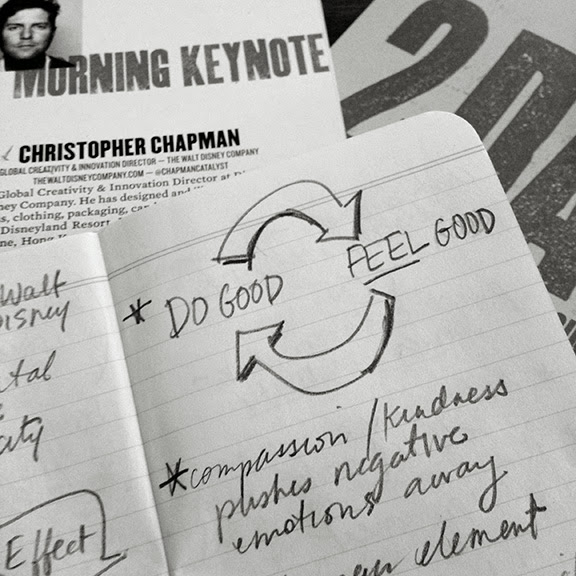 MORNING KEYNOTE
CHRISTOPHER CHAPMAN
GLOBAL CREATIVITY & INNOVATION DIRECTOR — THE WALT DISNEY COMPANY
THEWALTDISNEYCOMPANY.COM — @CHAPMANCATALYST
Global Creativity & Innovation Director at
ney Company. He has designed and
s, clothing, packaging,
Disneyland Resort,
ne, Hong
20
Walt
Disney
tal
city
Effect
* DO GOOD
FEEL GOOD
* compassion / kindness
pushes negative
emotions away
element